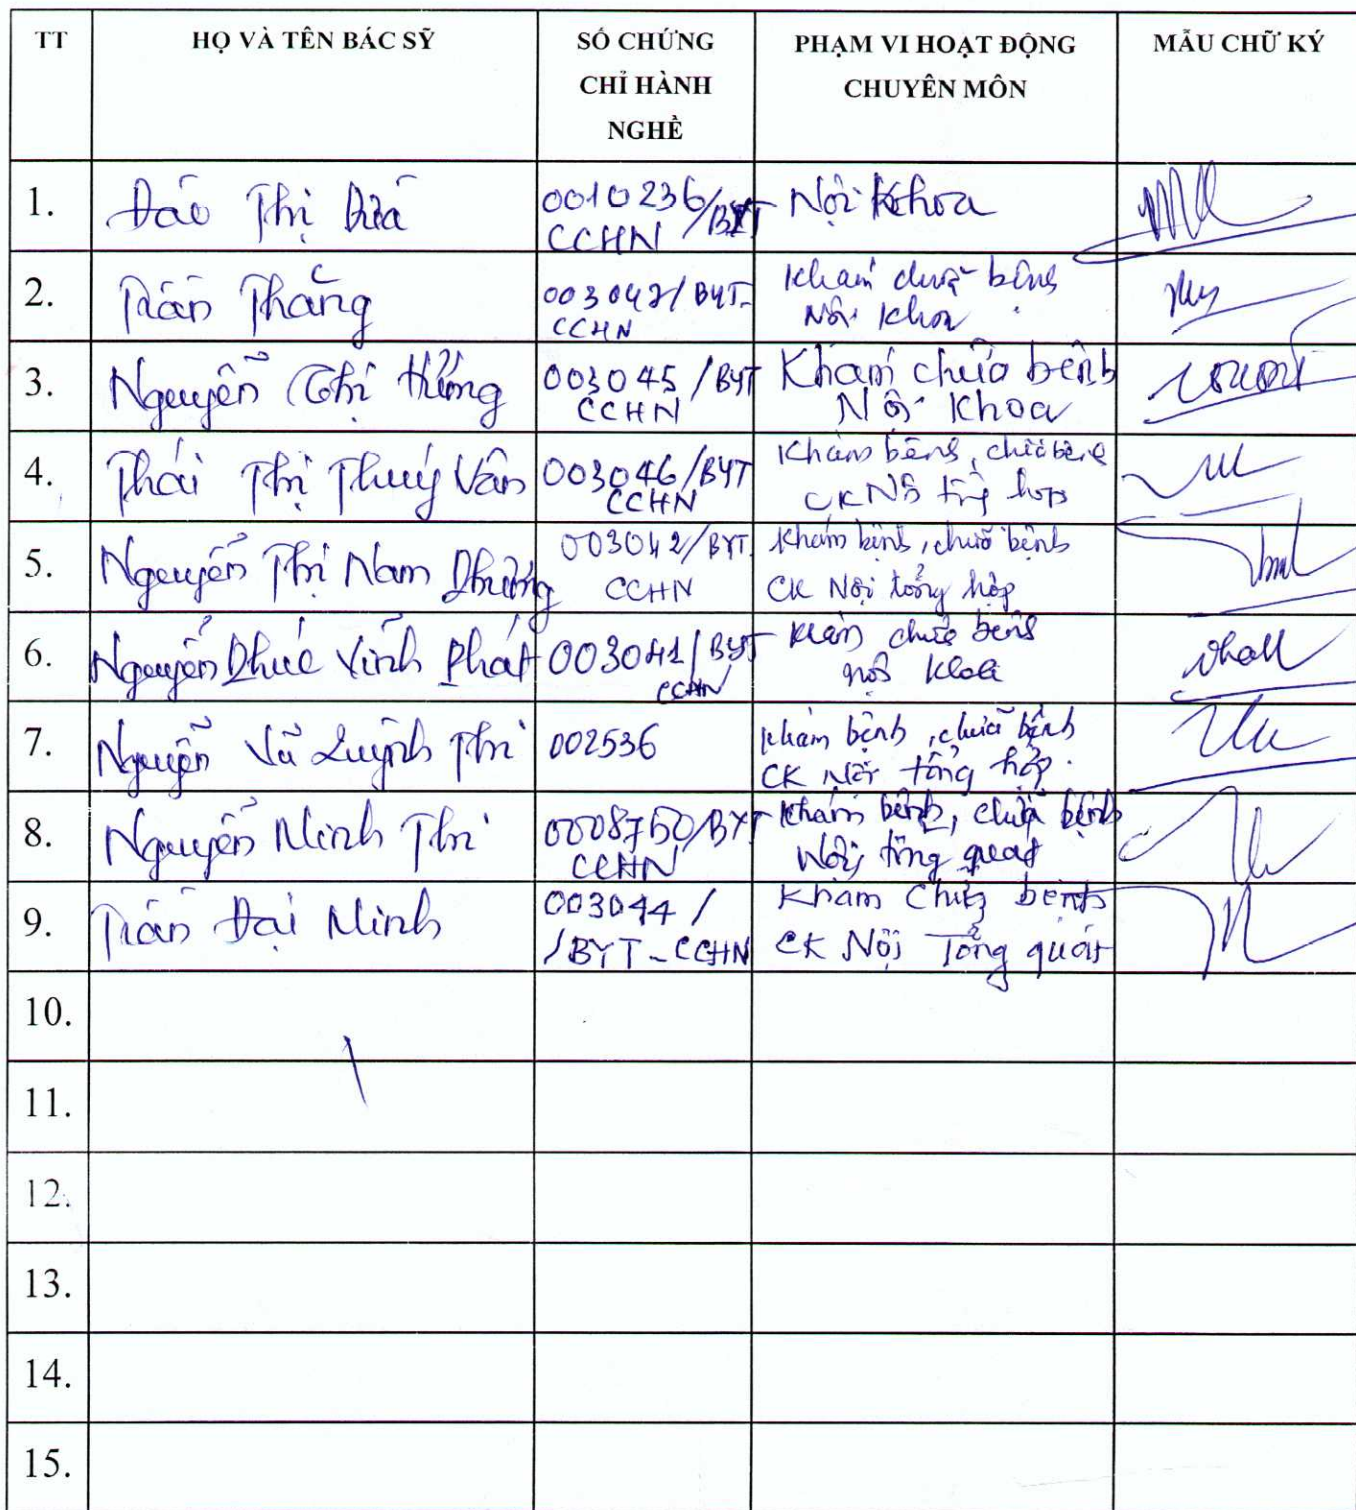 TT
HỌ VÀ TÊN BÁC SỸ
SỐ CHỨNG
CHỈ HÀNH
NGHỀ
PHẠM VI HOẠT ĐỘNG
CHUYÊN MÔN
MẪU CHỮ KÝ
1.
Đào Thị Dừa
0010236/BYT
CCHN
Nội Khoa
2.
Trần Thắng
/BYT-
CCHN
Khám chữa bệnh
Nội khoa
3.
Nguyễn Thị Hồng
003045/BYT
CCHN
Khám chữa bệnh
Nội Khoa
4.
Thái Thị Thuý Vân
003046/BYT
CCHN
Khám bệnh, chữa bệnh
CK Nội tổng hợp
5.
Nguyễn Thị Nam Phương
003042/BYT
CCHN
Khám bệnh, chữa bệnh
CK Nội tổng hợp
6.
Nguyễn Phúc Vĩnh Phát
003041/BYT
CCHN
Khám chữa bệnh
nội khoa
7.
Nguyễn Vũ Quỳnh Thi
002536
Khám bệnh, chữa bệnh
CK Nội tổng hợp.
8.
Nguyễn Minh Thi
0008750/BYT
CCHN
Khám bệnh, chữa bệnh
Nội tổng quát
9.
Trần Đại Minh
003044/
/BYT-CCHN
Khám chữa bệnh
CK Nội Tổng quát
10.
11.
12.
13.
14.
15.